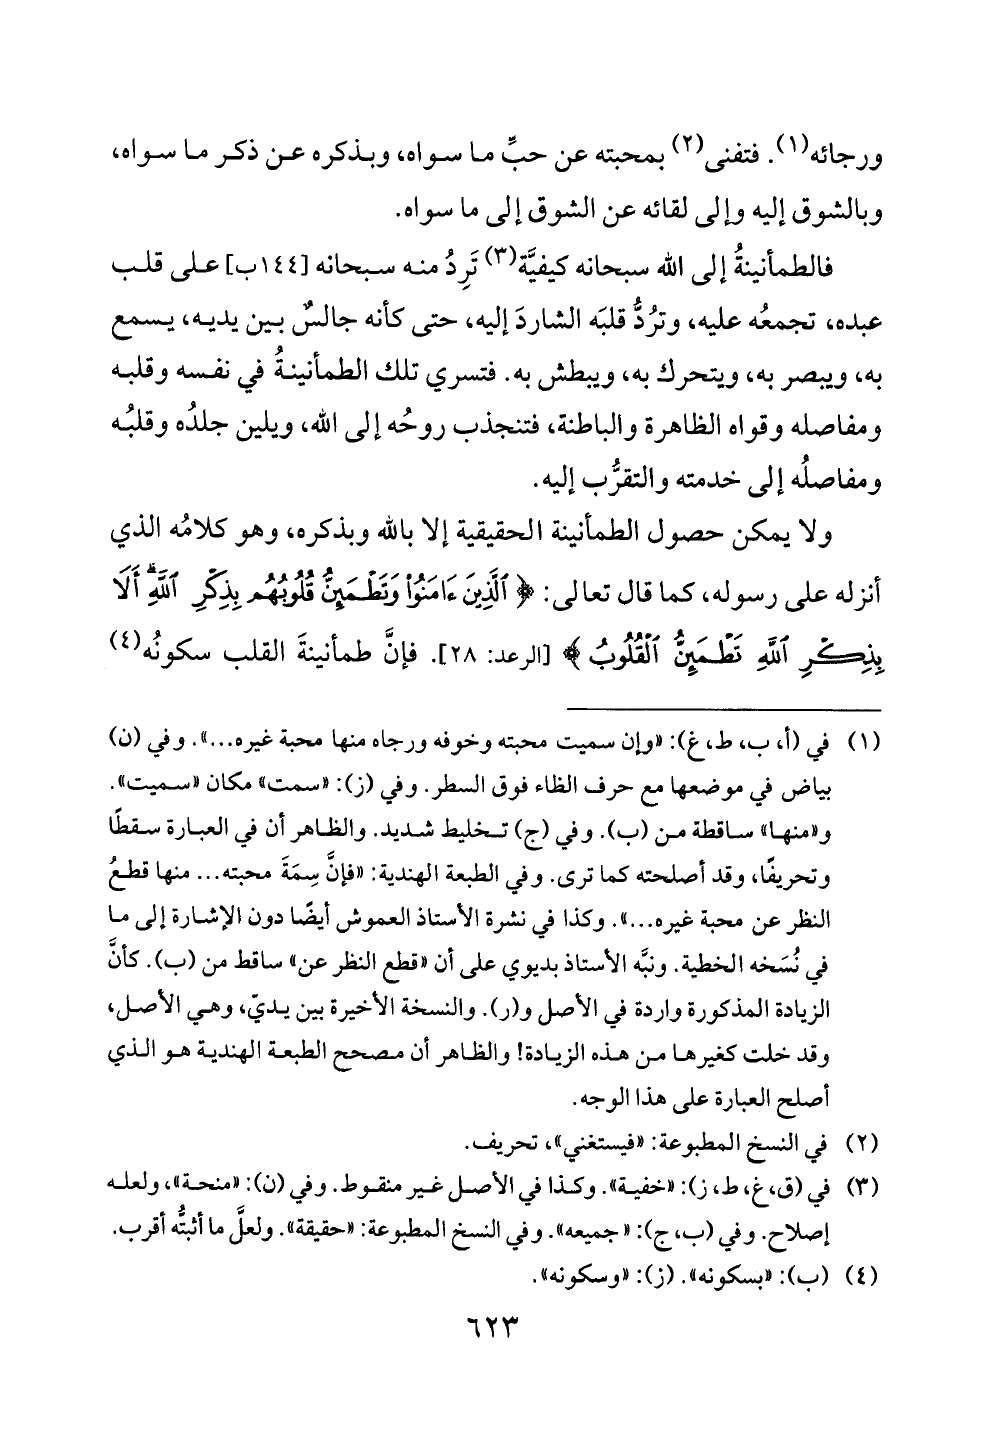 ورجائه(١). فتفنى(٢) بمحبته عن حبِّ ما سواه، وبذكره عن ذكر ما سواه،
وبالشوق إليه وإلى لقائه عن الشوق إلى ما سواه.
فالطمأنينةُ إلى الله سبحانه كيفيَّة(٣) تَرِدُ منه سبحانه [١٤٤ب] على قلب
عبده، تجمعُه عليه، وتردُّ قلبَه الشاردَ إليه، حتى كأنه جالسٌ بين يديه، يسمع
به، ويبصر به، ويتحرك به، ويبطش به. فتسري تلك الطمأنينةُ في نفسه وقلبه
ومفاصله وقواه الظاهرة والباطنة، فتنجذب روحُه إلى الله، ويلين جلدُه وقلبُه
ومفاصلُه إلى خدمته والتقرُّب إليه.
ولا يمكن حصول الطمأنينة الحقيقية إلا بالله وبذكره، وهو كلامُه الذي
أنزله على رسوله، كما قال تعالى: ﴿ٱلَّذِينَ ءَامَنُوا۟ وَتَطْمَئِنُّ قُلُوبُهُم بِذِكْرِ ٱللَّهِ ۗ أَلَا
بِذِكْرِ ٱللَّهِ تَطْمَئِنُّ ٱلْقُلُوبُ﴾ [الرعد: ٢٨]. فإنَّ طمأنينةَ القلب سكونُه(٤)
(١) في (أ، ب، ط، غ): «وإن سميت محبته وخوفه ورجاه منها محبة غيره...». وفي (ن)
بياض في موضعها مع حرف الظاء فوق السطر. وفي (ز): «سمت» مكان «سميت».
و«منها» ساقطة من (ب). وفي (ج) تخليط شديد. والظاهر أن في العبارة سقطًا
وتحريفًا، وقد أصلحته كما ترى. وفي الطبعة الهندية: «فإنَّ سِمَةَ محبته... منها قطعُ
النظر عن محبة غيره...». وكذا في نشرة الأستاذ العموش أيضًا دون الإشارة إلى ما
في نُسَخه الخطية. ونبَّه الأستاذ بديوي على أن «قطع النظر عن» ساقط من (ب). كأنَّ
الزيادة المذكورة واردة في الأصل و(ر). والنسخة الأخيرة بين يديّ، وهي الأصل،
وقد خلت كغيرها من هذه الزيادة! والظاهر أن مصحح الطبعة الهندية هو الذي
أصلح العبارة على هذا الوجه.
(٢) في النسخ المطبوعة: «فيستغني»، تحريف.
(٣) في (ق، غ، ط، ز): «خفية». وكذا في الأصل غير منقوط. وفي (ن): «منحة»، ولعله
إصلاح. وفي (ب، ج): «جميعه». وفي النسخ المطبوعة: «حقيقة». ولعلَّ ما أثبتُّه أقرب.
(٤) (ب): «بسكونه». (ز): «وسكونه».
٦٢٣